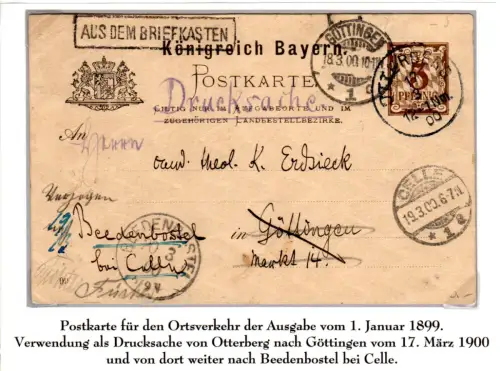 AUS DEM BRIEFKASTEN
Königreich Bayern.
GÖTTINGEN
18.3.00.10-11
* 1
POSTKARTE
3
PFENNIG
Drucksache
GILTIG NUR IM AUFGABEORTE UND IM
ZUGEHÖRIGEN LANDESTELLBEZIRKE.
An
Herrn
cand. theol. K. Erdsieck
Verzogen
Beedenbostel
in Göttingen
bei Celle
Markt 14.
CELLE
19.3.00.6-7
* 1
Postkarte für den Ortsverkehr der Ausgabe vom 1. Januar 1899.
Verwendung als Drucksache von Otterberg nach Göttingen vom 17. März 1900
und von dort weiter nach Beedenbostel bei Celle.